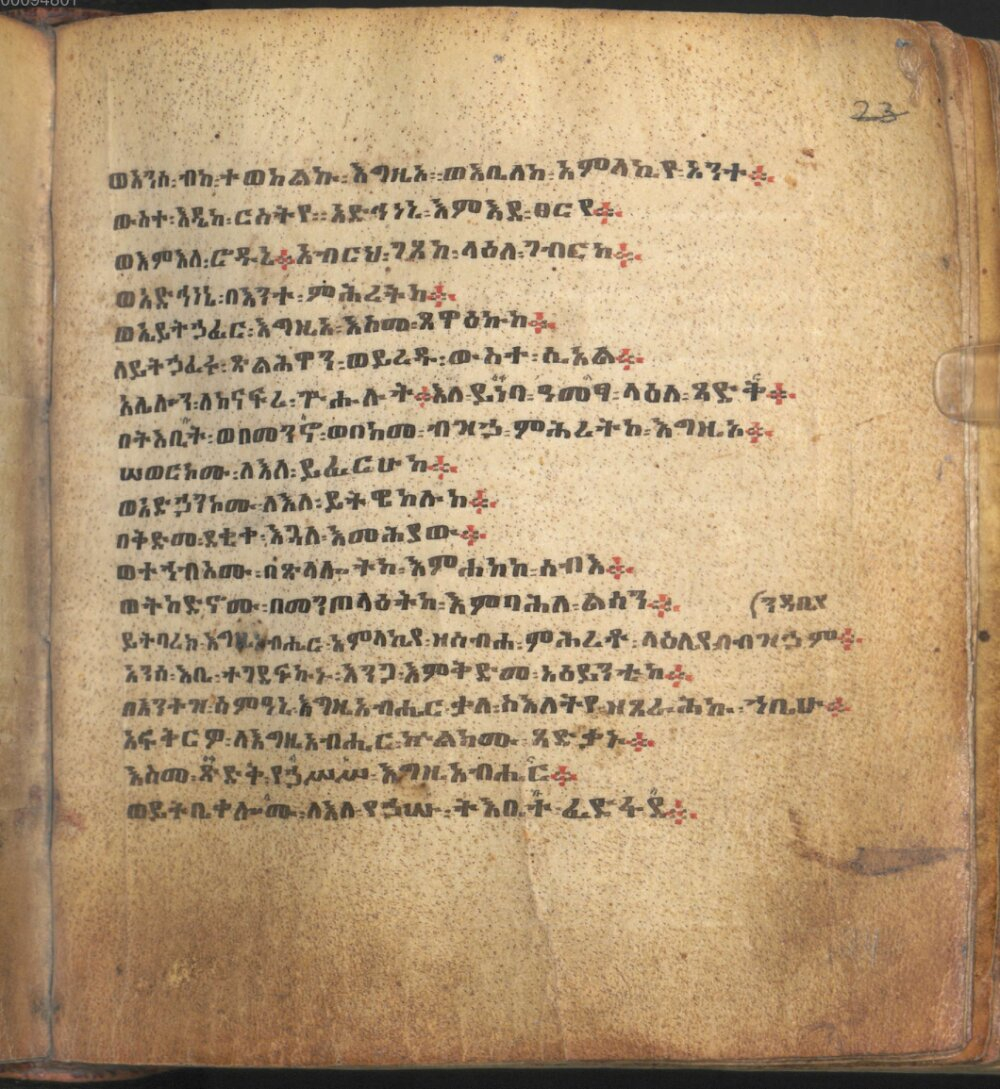 00094801
23
ወአንሰ፡ብከ፡ተወከልኩ፡እግዚአ፡ወእቤለከ፡አምላኪየ፡አንተ።
ውስተ፡እዴከ፡ርስትየ፡አድኅነኒ፡እምእደ፡ፀርየ።
ወእምእለ፡ሮዱኒ።አብርህ፡ገጸከ፡ላዕለ፡ገብርከ።
ወአድኅነኒ፡በእንተ፡ምሕረትከ።
ወኢይትኃፈር፡እግዚአ፡እስመ፡ጸዋዕኩከ።
ለይትኃፈሩ፡ጽልሕዋን፡ወይረዱ፡ውስተ፡ሲኦል።
አሌሎን፡ለከናፍረ፡ጕሕሉት።እለ፡ይነባ፡ዓመፃ፡ላዕለ፡ጻድቅ።
በትእቢት፡ወበመንኖ፡ወበከመ፡ብዝኃ፡ምሕረትከ፡እግዚአ።
ሠወርኮሙ፡ለእለ፡ይፈርሁከ።
ወአድኃንኮሙ፡ለእለ፡ይትዌከሉከ።
በቅድመ፡ደቂቀ፡እጓለ፡እመሕያው።
ወተኀብኦሙ፡በጽላሎትከ፡እምሐከከ፡ሰብእ።
ወትከድኖሙ፡በመንጦላዕትከ፡እምባሕለ፡ልሳን።
ይትባረክ፡እግዚአብሔር፡አምላኪየ፡ዘሰብሐ፡ምሕረቶ፡ላዕሌየ
አንሰ፡እቤ፡ተገደፍኩኑ፡እንጋ፡እምቅድመ፡አዕይንቲከ።
በእንተዝ፡ሰምዓኒ፡እግዚአብሔር፡ቃለ፡ስእለትየ፡ዘጸራሕኩ፡ኀቤሁ።
አፍቅርዎ፡ለእግዚአብሔር፡ኵልክሙ፡ጻድቃኑ።
እስመ፡ጽድቀ፡የኃሥሥ፡እግዚአብሔር።
ወይትቤቀሎሙ፡ለእለ፡የኃሡ፡ትእቢተ፡ፈድፋደ።